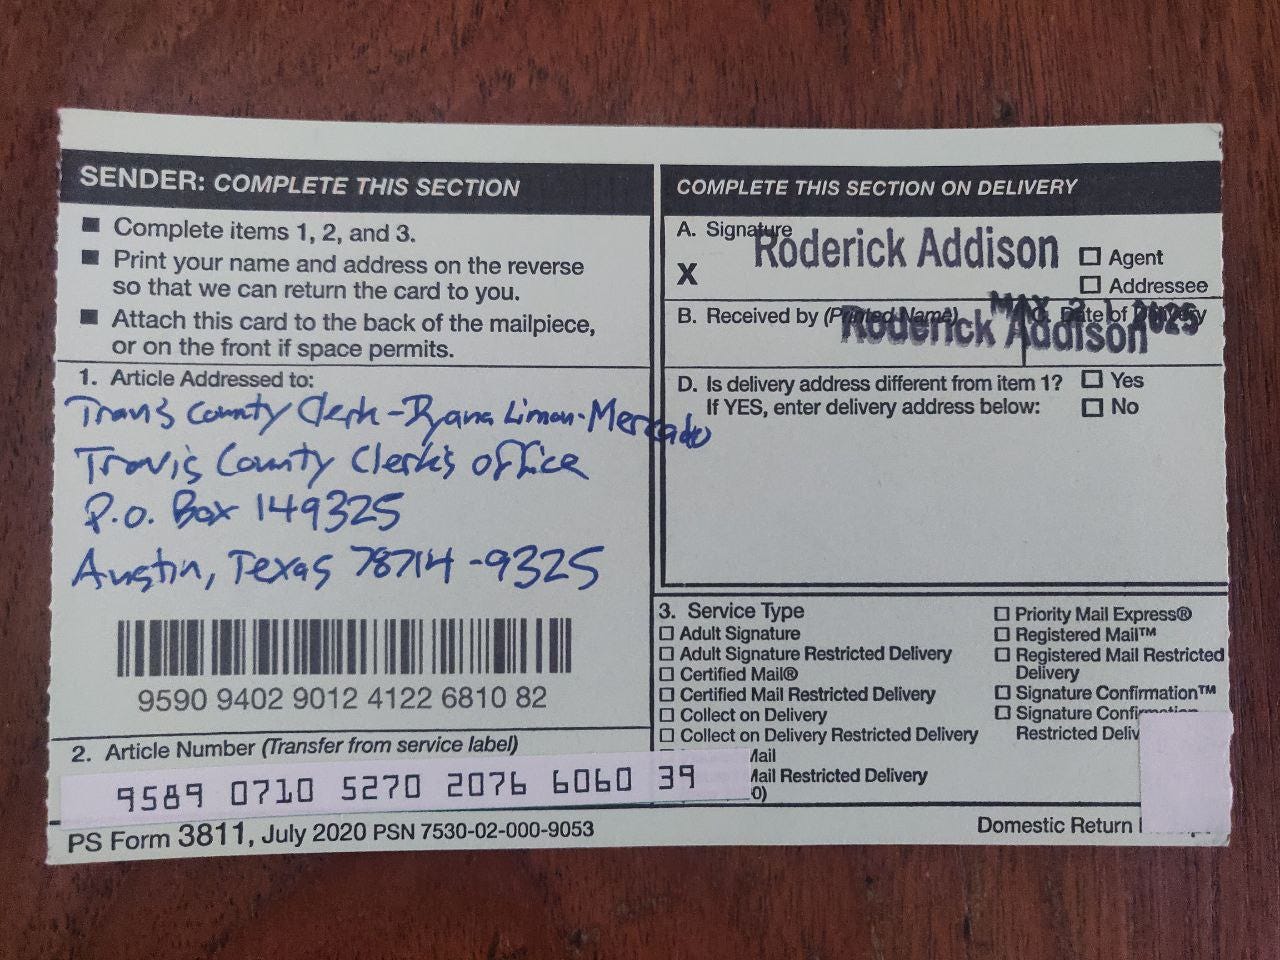 SENDER: COMPLETE THIS SECTION
■ Complete items 1, 2, and 3.
■ Print your name and address on the reverse
so that we can return the card to you.
■ Attach this card to the back of the mailpiece,
or on the front if space permits.
1. Article Addressed to:
Travis County Clerk - Dyana Limon-Mercado
Travis County Clerk's office
P.O. Box 149325
Austin, Texas 78714-9325
9590 9402 9012 4122 6810 82
2. Article Number (Transfer from service label)
9589 0710 5270 2076 6060 39
PS Form 3811, July 2020 PSN 7530-02-000-9053
COMPLETE THIS SECTION ON DELIVERY
A. Signature
Roderick Addison
X
☐ Agent
☐ Addressee
B. Received by (Printed Name)
C. Date of Delivery
Roderick Addison
MAY 2025
D. Is delivery address different from item 1? ☐ Yes
If YES, enter delivery address below: ☐ No
3. Service Type
☐ Adult Signature
☐ Adult Signature Restricted Delivery
☐ Certified Mail®
☐ Certified Mail Restricted Delivery
☐ Collect on Delivery
☐ Collect on Delivery Restricted Delivery
Mail
Mail Restricted Delivery
0)
☐ Priority Mail Express®
☐ Registered Mail™
☐ Registered Mail Restricted
Delivery
☐ Signature Confirmation™
☐ Signature Confirmation
Restricted Deliv
Domestic Return